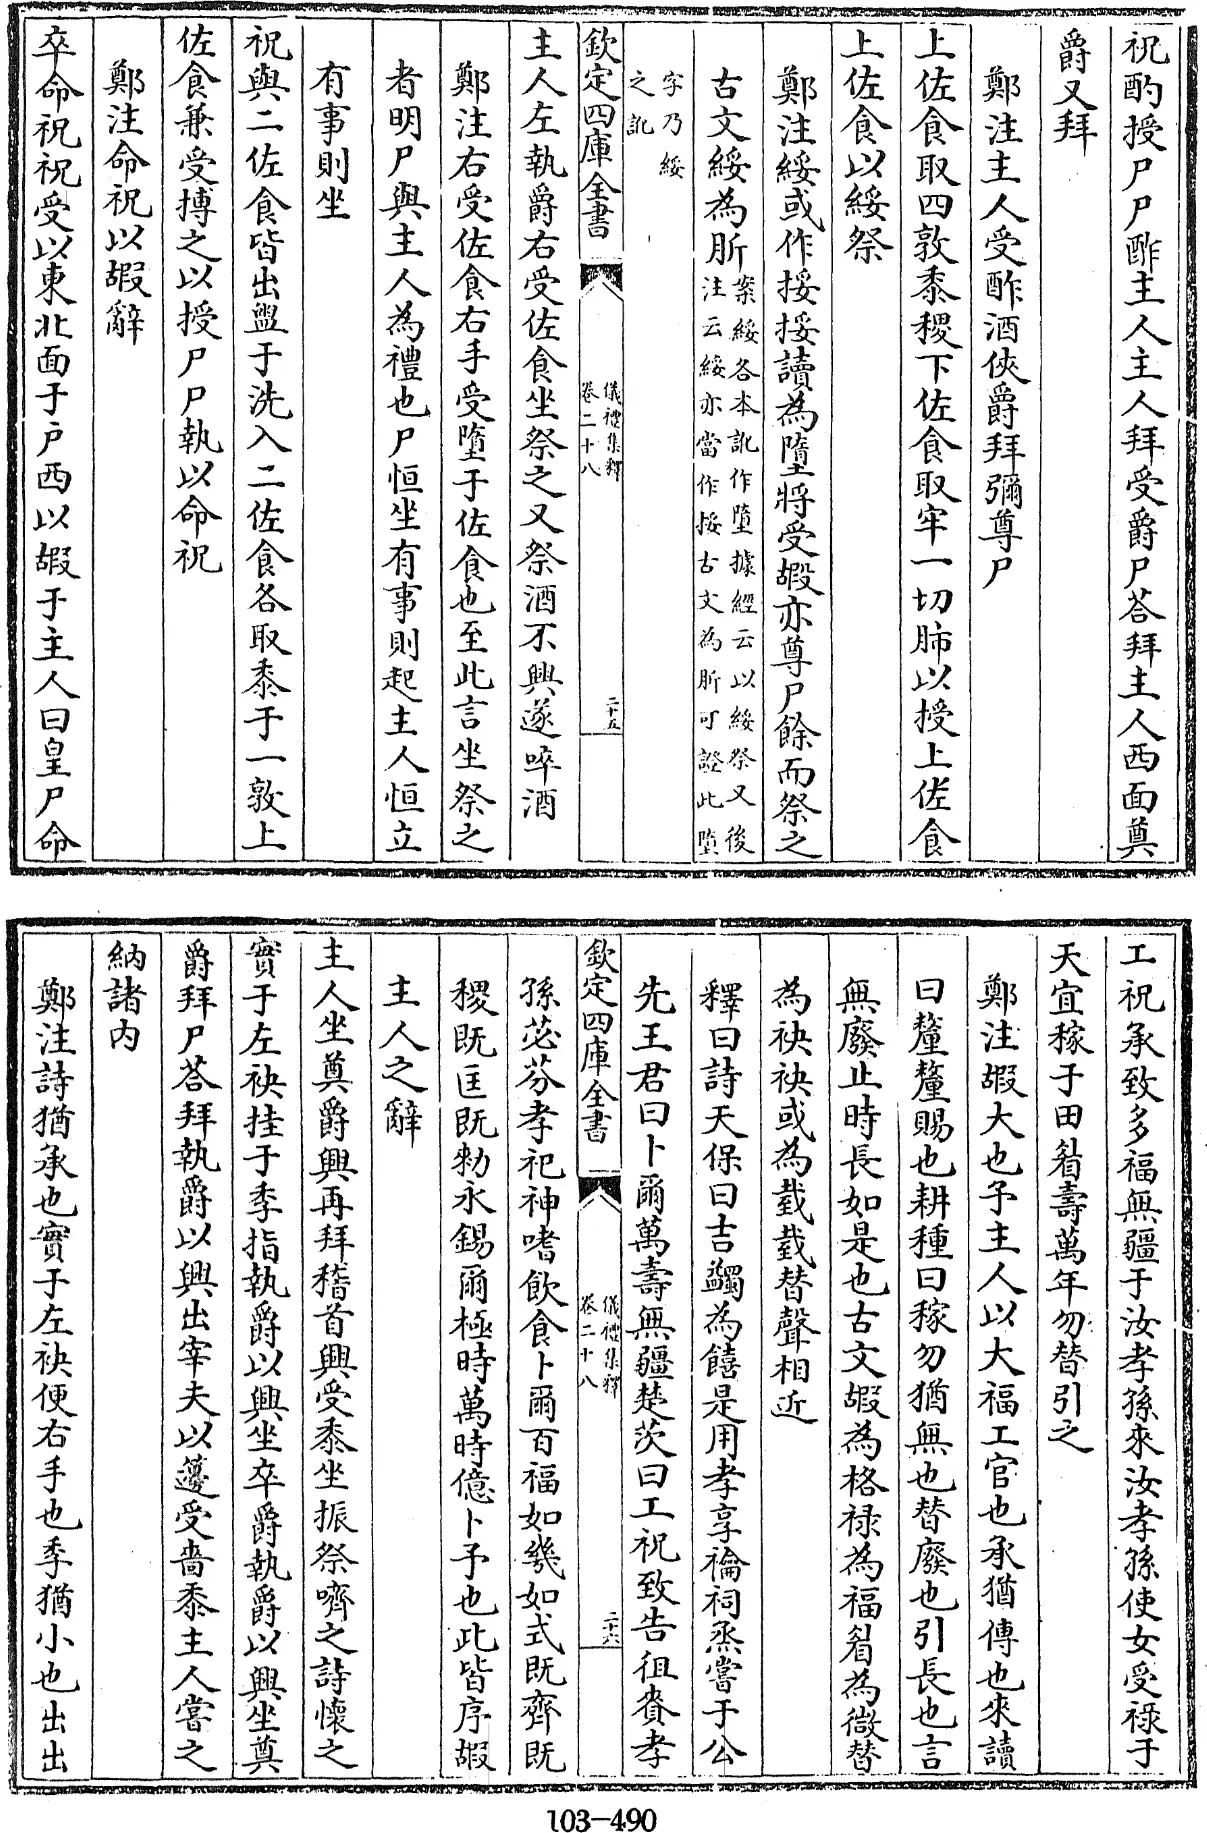 祝酌授尸尸酢主人主人拜受爵尸荅拜主人西面奠
爵又拜
鄭注主人受酢酒俠爵拜彌尊尸
上佐食取四敦黍稷下佐食取牢一切肺以授上佐食
上佐食以綏祭
鄭注綏或作挼挼讀為墮將受嘏亦尊尸餘而祭之
古文綏為肵案綏各本訛作墮據經云以綏祭又後
注云綏亦當作挼古文為肵可證此墮
字乃綏
之訛
欽定四庫全書
儀禮集釋
卷二十八
二十五
主人左執爵右受佐食坐祭之又祭酒不興遂啐酒
鄭注右受佐食右手受墮于佐食也至此言坐祭之
者明尸與主人為禮也尸恒坐有事則起主人恒立
有事則坐
祝與二佐食皆出盥于洗入二佐食各取黍于一敦上
佐食兼受摶之以授尸尸執以命祝
鄭注命祝以嘏辭
卒命祝祝受以東北面于户西以嘏于主人曰皇尸命
工祝承致多福無疆于汝孝孫來汝孝孫使女受祿于
天宜稼于田眉壽萬年勿替引之
鄭注嘏大也予主人以大福工官也承猶傳也來讀
曰釐釐賜也耕種曰稼勿猶無也替廢也引長也言
無廢止時長如是也古文嘏為格祿為福眉為微替
為袂袂或為㦸㦸替聲相近
釋曰詩天保曰吉蠲為饎是用孝享禴祠烝嘗于公
先王君曰卜爾萬壽無疆楚茨曰工祝致告徂賚孝
欽定四庫全書
儀禮集釋
卷二十八
二十六
孫苾芬孝祀神嗜飲食卜爾百福如幾如式既齊既
稷既匡既勑永錫爾極時萬時億卜予也此皆序嘏
主人之辭
主人坐奠爵興再拜稽首興受黍坐振祭嚌之詩懷之
實于左袂挂于季指執爵以興坐卒爵執爵以興坐奠
爵拜尸荅拜執爵以興出宰夫以籩受嗇黍主人嘗之
納諸内
鄭注詩猶承也實于左袂便右手也季猶小也出出
103-490